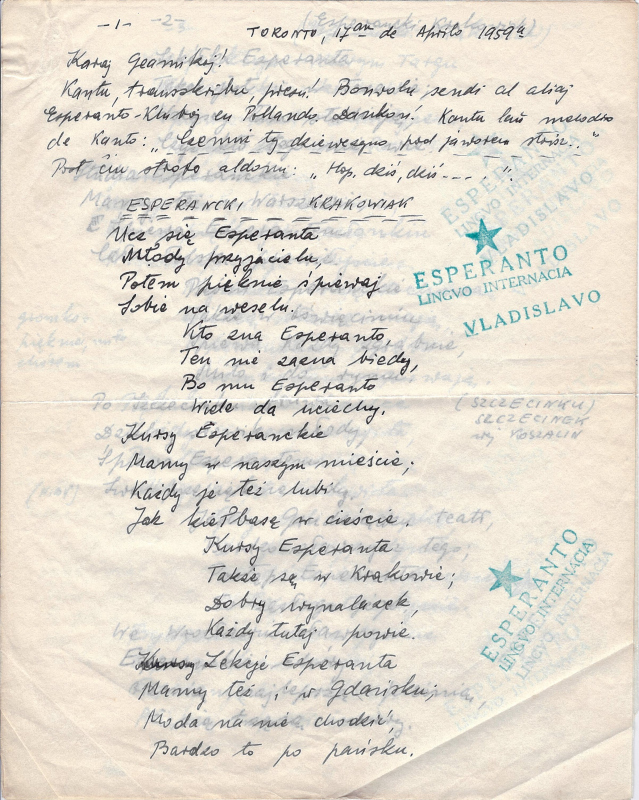 -1-
TORONTO, 17an de Aprilo 1959a
Karaj Geamikoj!
Kantu, transskribu, presu! Bonvolu sendi al aliaj
Esperanto-Kluboj en Pollando. Dankon! Kantu laŭ melodio
de Kanto: „Czemu ty dziewczyno pod jaworem stoisz.."
Post ĉiu strofo aldonu: „Hop, dziś, dziś - - - -."
ESPERANCKI KRAKOWIAK
Ucz się Esperanta
Młody przyjacielu,
Potem pięknie śpiewaj
Sobie na weselu.
Kto zna Esperanto,
Ten nie zazna biedy,
Bo mu Esperanto
Wiele da uciechy.
Kursy Esperanckie
Mamy w naszym mieście;
Każdy je też lubi,
Jak kiełbasę w cieście.
Kursy Esperanta
Także są w Krakowie;
Dobry wynalazek,
Każdy tutaj powie.
Kursy Lekcje Esperanta
Mamy też, w Gdańsku;
Moda na nie chodzić,
Bardzo to po pańsku.
ESPERANTO
LINGVO INTERNACIA
VLADISLAVO
(SZCZECINKU)
SZCZECINEK
KOSZALIN
ESPERANTO
LINGVO INTERNACIA